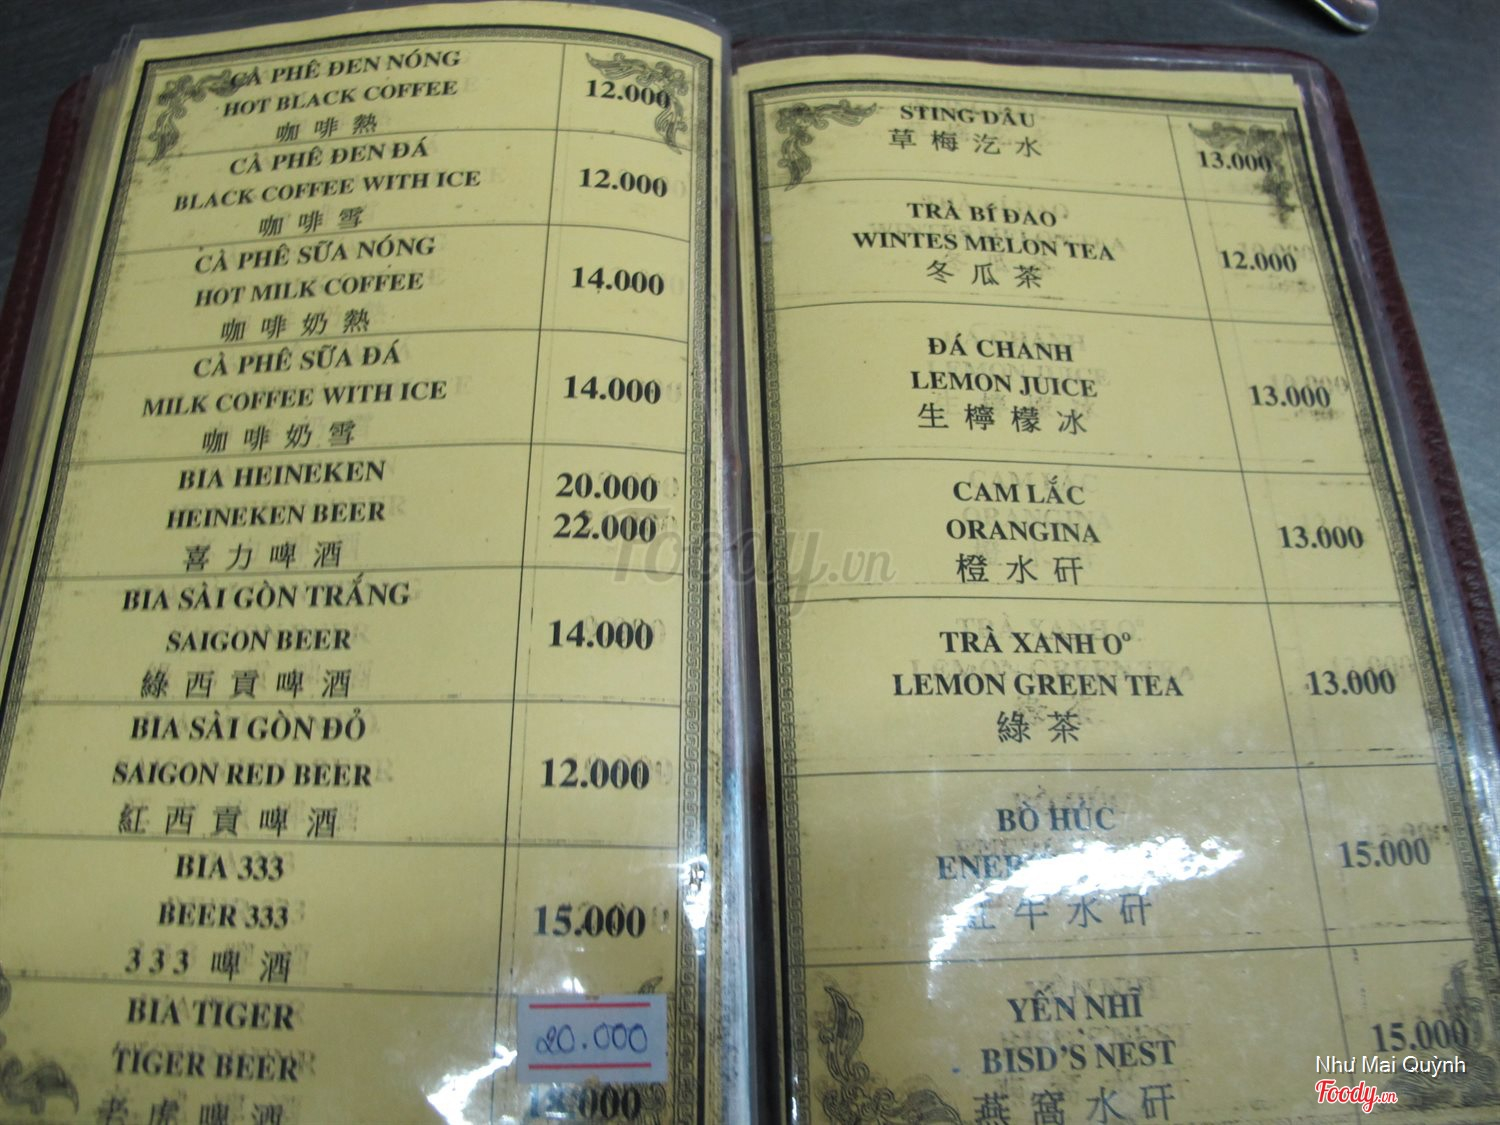 CÀ PHÊ ĐEN NÓNG
HOT BLACK COFFEE
咖啡熱
12.000
CÀ PHÊ ĐEN ĐÁ
BLACK COFFEE WITH ICE
咖啡雪
12.000
CÀ PHÊ SỮA NÓNG
HOT MILK COFFEE
咖啡奶熱
14.000
CÀ PHÊ SỮA ĐÁ
MILK COFFEE WITH ICE
咖啡奶雪
14.000
BIA HEINEKEN
HEINEKEN BEER
喜力啤酒
20.000
22.000
BIA SÀI GÒN TRẮNG
SAIGON BEER
綠西貢啤酒
14.000
BIA SÀI GÒN ĐỎ
SAIGON RED BEER
紅西貢啤酒
12.000
BIA 333
BEER 333
333 啤酒
15.000
BIA TIGER
TIGER BEER
老虎啤酒
20.000
18.000
STING DÂU
草梅汔水
13.000
TRÀ BÍ ĐAO
WINTES MELON TEA
冬瓜茶
12.000
ĐÁ CHANH
LEMON JUICE
生檸檬冰
13.000
CAM LẮC
ORANGINA
橙水矸
13.000
TRÀ XANH Oº
LEMON GREEN TEA
綠茶
13.000
BÒ HÚC
紅牛水矸
15.000
YẾN NHĨ
BISD'S NEST
燕窩水矸
15.000
Foody.vn
Như Mai Quỳnh
Foody.vn